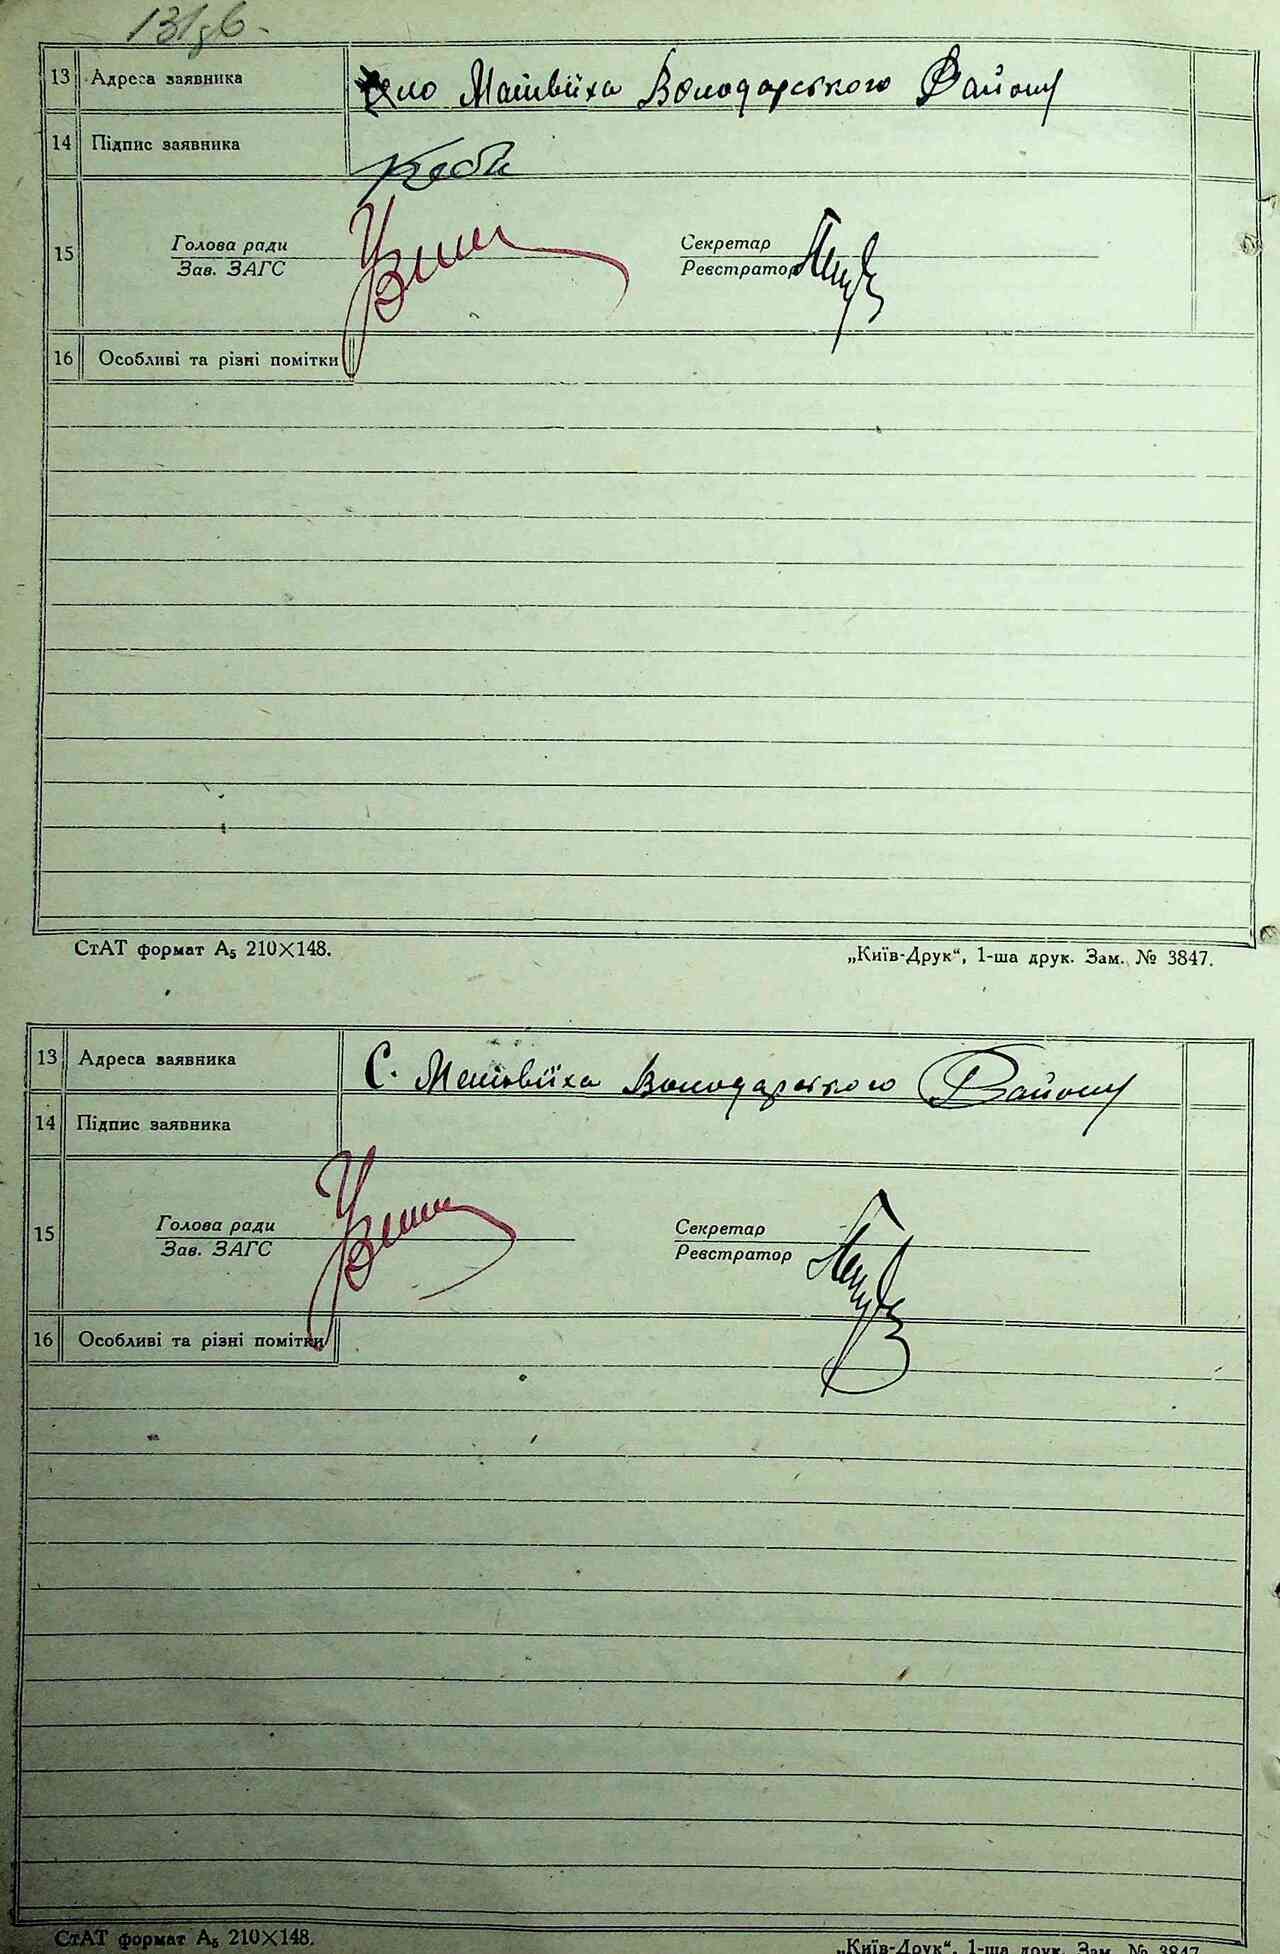 131зв.
13 Адреса заявника село Матвіїха Володарського Району
14 Підпис заявника
15 Голова ради Секретар
Зав. ЗАГС Реєстратор
16 Особливі та різні помітки
СтАТ формат А₅ 210×148. „Київ-Друк“, 1-ша друк. Зам. № 3847.
13 Адреса заявника С. Матвіїха Володарського Району
14 Підпис заявника
15 Голова ради Секретар
Зав. ЗАГС Реєстратор
16 Особливі та різні помітки
СтАТ формат А₅ 210×148. „Київ-Друк“, 1-ша друк. Зам. № 3847.